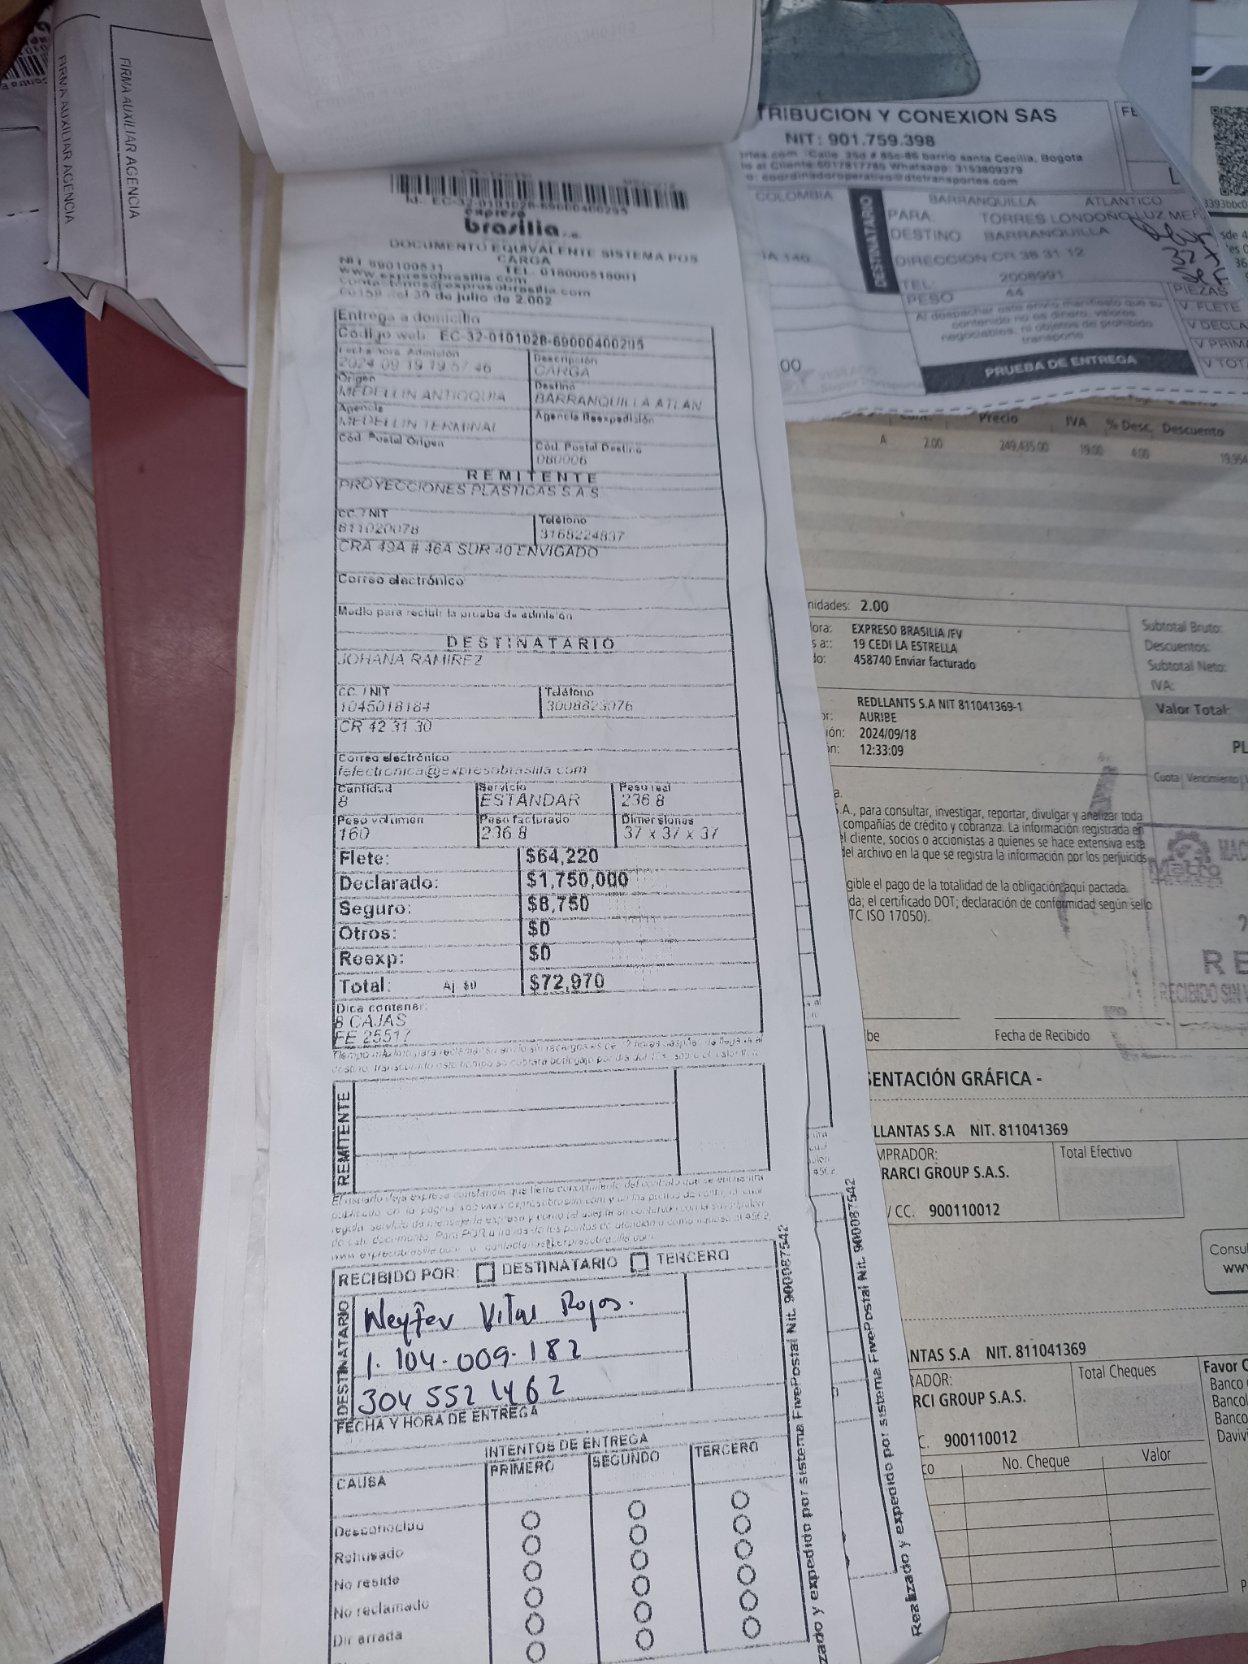 FIRMA AUXILIAR AGENCIA
FIRMA AUXILIAR AGENCIA
Id.: EC-32-0101028-69000400295
expreso
brasilia s.a.
DOCUMENTO EQUIVALENTE SISTEMA POS
CARGA
NIT 890100531 TEL. 018000518001
www.expresobrasilia.com
contactenos@expresobrasilia.com
00159 del 30 de julio de 2.002
Entrega a domicilio
Código web: EC-32-0101028-69000400295
Fecha hora Admisión
2024-09-19 19:57:46
Descripción
CARGA
Origen
MEDELLIN ANTIOQUIA
Destino
BARRANQUILLA ATLAN
Agencia
MEDELLIN TERMINAL
Agencia Reexpedisión
Cód. Postal Origen
Cód. Postal Destino
080006
REMITENTE
PROYECCIONES PLASTICAS S.A.S
CC. / NIT
811020078
Teléfono
3165224837
CRA 49A # 46A SUR 40 ENVIGADO
Correo electrónico
Medio para recibir la prueba de admisión
DESTINATARIO
JOHANA RAMIREZ
CC. / NIT
1045018184
Teléfono
CR 42 31 30
Correo electrónico
felectronica@expresobrasilia.com
Cantidad
8
Servicio
ESTANDAR
Peso real
236.8
Peso volumen
160
Peso facturado
236.8
Dimensiones
37 x 37 x 37
Flete: $64,220
Declarado: $1,750,000
Seguro: $8,750
Otros: $0
Reexp: $0
Total: Aj $0 $72,970
Dice contener:
8 CAJAS
FE 25517
REMITENTE
RECIBIDO POR: DESTINATARIO TERCERO
DESTINATARIO
Neyfer Vital Rojas.
1.104.009.182
304 552 1462
FECHA Y HORA DE ENTREGA
INTENTOS DE ENTREGA
CAUSA PRIMERO SEGUNDO TERCERO
Desconocido
Rehusado
No reside
No reclamado
Dir errada
zado y expedido por sistema FivePostal Nit. 900087542
Realizado y expedido por sistema FivePostal Nit. 900087542
TRIBUCION Y CONEXION SAS
NIT: 901.759.398
Calle 25d # 85c-86 barrio santa Cecilia, Bogota
al Cliente 6017817785 Whatsapp: 3153809379
coordinadoroperativo@dtctransportes.com
COLOMBIA
DESTINATARIO
BARRANQUILLA ATLANTICO
PARA: TORRES LONDOÑO LUZ MER
DESTINO BARRANQUILLA
DIRECCION CR 38 31 12
TEL: 2008991
PESO 44
Al despachar este envio manifiesto que su
contenido no es dinero, valores
negociables, ni objetos de prohibido
transporte
PRUEBA DE ENTREGA
PIEZAS
V. FLETE
V DECLA
V PRIM
V TOT
00
Precio IVA % Desc. Descuento
A 2.00 249,435.00 19.00 4.00 19,954
nidades: 2.00
ora: EXPRESO BRASILIA /FV
s a:: 19 CEDI LA ESTRELLA
do: 458740 Enviar facturado
REDLLANTS S.A NIT 811041369-1
or: AURIBE
ión: 2024/09/18
ón: 12:33:09
Subtotal Bruto:
Descuentos:
Subtotal Neto:
IVA:
Valor Total:
PL
Cuota Vencimiento
.A., para consultar, investigar, reportar, divulgar y analizar toda
compañías de crédito y cobranza. La información registrada en
el cliente, socios o accionistas a quienes se hace extensiva esta
del archivo en la que se registra la información por los perjuicios
gible el pago de la totalidad de la obligación aquí pactada.
da; el certificado DOT; declaración de conformidad según sello
TC ISO 17050).
Metro
RE
RECIBIDO SIN
be Fecha de Recibido
SENTACIÓN GRÁFICA -
LLANTAS S.A NIT. 811041369
MPRADOR:
RARCI GROUP S.A.S.
Total Efectivo
/ CC. 900110012
Consul
www
NTAS S.A NIT. 811041369
RADOR:
RCI GROUP S.A.S.
Total Cheques
C. 900110012
Favor C
Banco
Bancol
Banco
Daviv
co No. Cheque Valor